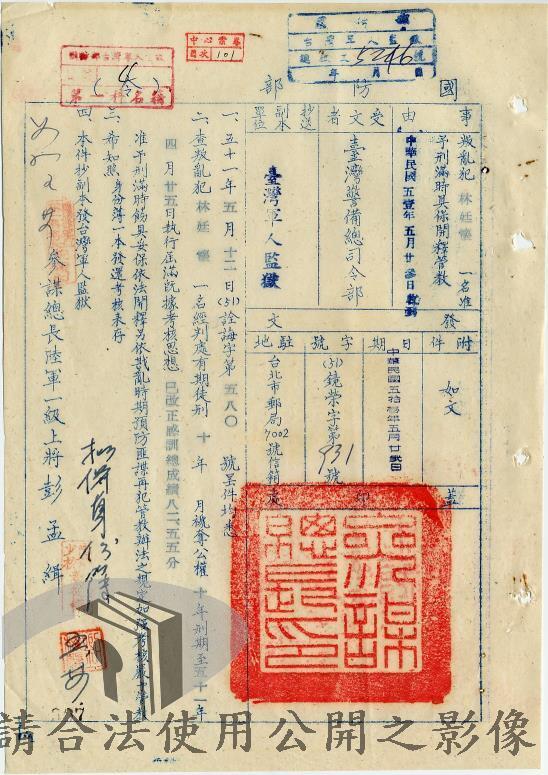 國防部
中心當卷
目次 101
5246
事由
叛亂犯林廷 一名准
予刑滿時具保開釋管教
受文者
臺灣警備總司令部
中華民國五壹年五月廿參日
抄送副本單位
臺灣軍人監獄
附件
如文
發文
日期
中華民國五拾壹年五月廿貳日
字號
(51)鏡榮字第931號
駐地
台北市郵局7002號信箱
蓋印處
參謀總長印
一、五十一年五月十二日(51)詮誨字第五八〇號呈件均悉
二、查叛亂犯林廷 一名經判處有期徒刑十年 月褫奪公權十年刑期至五十一年
四月廿五日執行屆滿既據考核思想已改正感訓總成績八二、五五分
准予刑滿時飭具妥保依法開釋另依戡亂時期預防匪諜再犯管教辦法之規定加強考核嚴予管教
三、希如照身份簿一本發還考核表存
四、本件抄副本發台灣軍人監獄
參謀總長陸軍一級上將彭孟緝
請合法使用公開之影像